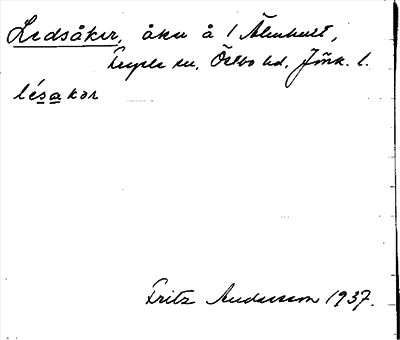 Ledsåker, åker å 1 Älmhult,
Fryele sn, Östbo hd, Jönk. l.
lésakər
Fritz Andersson 1937.